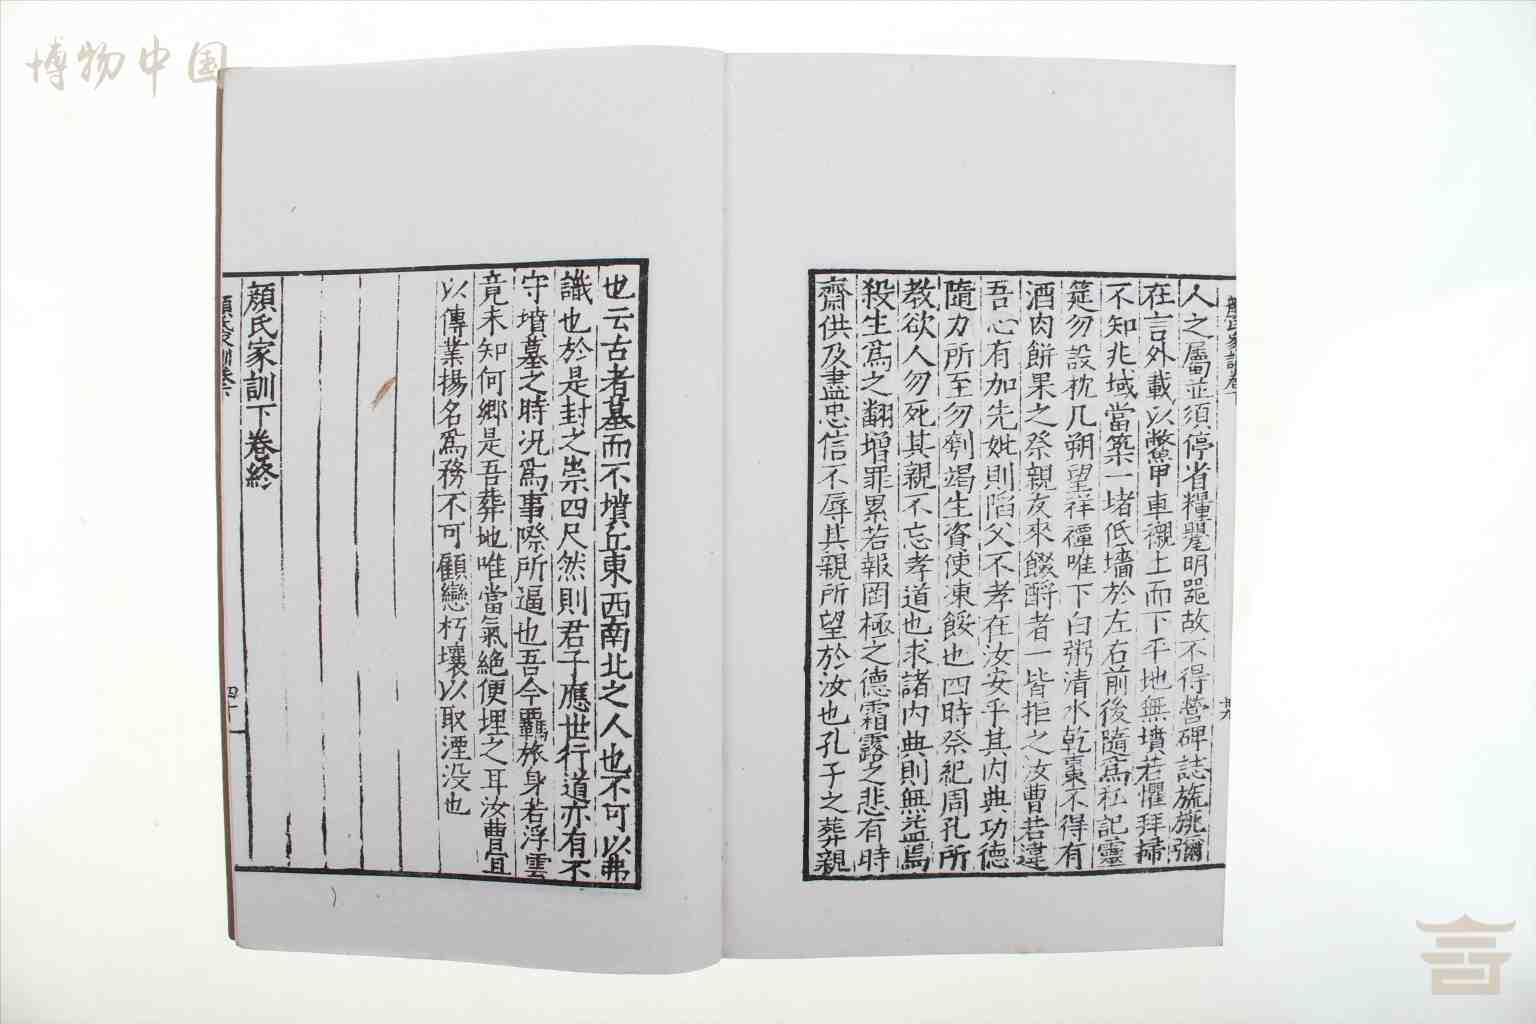 博物中国
人之屬並須停省糧甖明器故不得營碑誌旒旐彌
在言外載以鱉甲車襯土而下平地無墳若懼拜掃
不知兆域當築一堵低墻於左右前後隨爲私記靈
筵勿設枕几朔望祥禫唯下白粥清水乾棗不得有
酒肉餅果之祭親友來餟酹者一皆拒之汝曹若違
吾心有加先妣則陷父不孝在汝安乎其内典功德
隨力所至勿刳竭生資使凍餒也四時祭祀周孔所
教欲人勿死其親不忘孝道也求諸内典則無益焉
殺生爲之翻增罪累若報罔極之德霜露之悲有時
齋供及盡忠信不辱其親所望於汝也孔子之葬親
也云古者墓而不墳丘東西南北之人也不可以弗
識也於是封之崇四尺然則君子應世行道亦有不
守墳墓之時况爲事際所逼也吾今羈旅身若浮雲
竟未知何郷是吾葬地唯當氣絶便埋之耳汝曹宜
以傳業揚名爲務不可顧戀朽壤以取湮没也
顔氏家訓下卷終